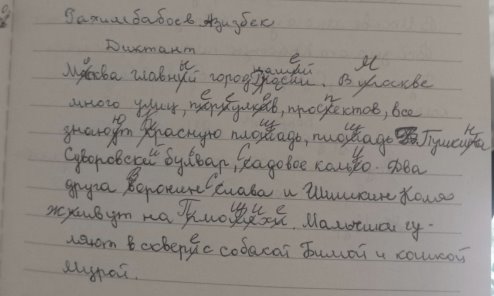 Рахимбабоев Азизбек
Диктант
Москва главный город нашей Росии. В Москве
много улиц, переулков, проспектов, все
знают Красную площадь, площадь Пушкина
Суворовский бульвар, Садовое кольцо. Два
друга Воронин Слава и Шишкин Коля
живут на Мальчики гу-
ляют в сквере с собакой Бимой и кошкой
Мурой.